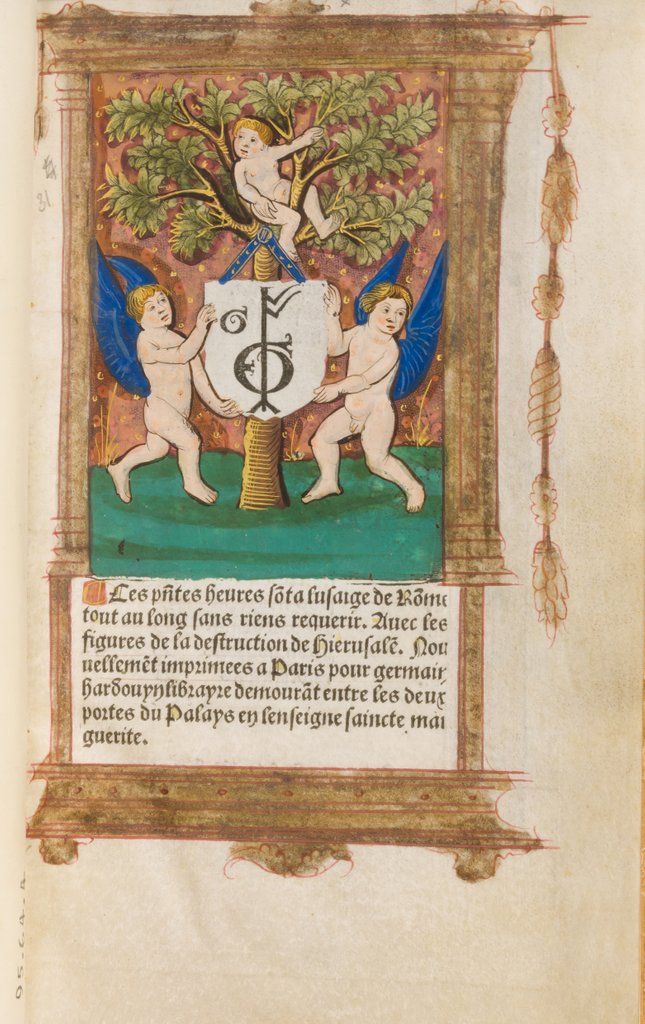 Ces pñtes heures sõt a lusaige de Rõme
tout au long sans riens requerir. Auec les
figures de la destruction de Hierusalẽ. Nou
uellemẽt imprimees a Paris pour germain
hardouyn librayre demourãt entre les deux
portes du Palays en lenseigne saincte mar
guerite.
31
95.C4.4